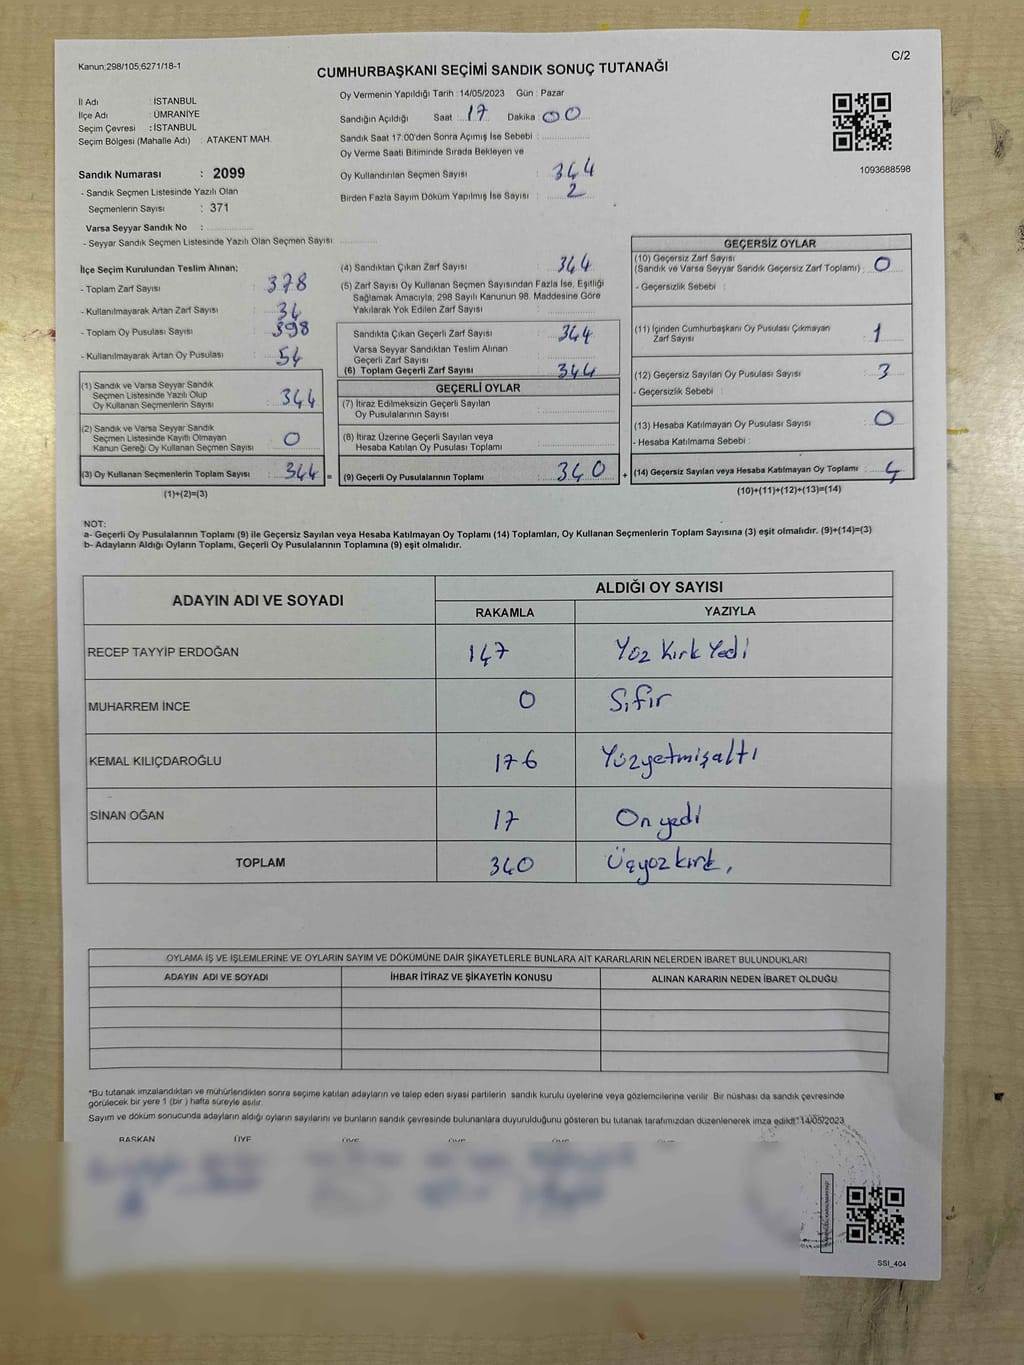 Kanun;298/105;6271/18-1
C/2
CUMHURBAŞKANI SEÇİMİ SANDIK SONUÇ TUTANAĞI
İl Adı : İSTANBUL
İlçe Adı : ÜMRANİYE
Seçim Çevresi : İSTANBUL
Seçim Bölgesi (Mahalle Adı) : ATAKENT MAH.
Sandık Numarası : 2099
- Sandık Seçmen Listesinde Yazılı Olan
Seçmenlerin Sayısı : 371
Varsa Seyyar Sandık No :
- Seyyar Sandık Seçmen Listesinde Yazılı Olan Seçmen Sayısı:
Oy Vermenin Yapıldığı Tarih : 14/05/2023 Gün : Pazar
Sandığın Açıldığı Saat : 17 Dakika : 00
Sandık Saat 17:00'den Sonra Açmış İse Sebebi :
Oy Verme Saati Bitiminde Sırada Bekleyen ve
Oy Kullandırılan Seçmen Sayısı : 344
Birden Fazla Sayım Döküm Yapılmış İse Sayısı : 2
1093688598
İlçe Seçim Kurulundan Teslim Alınan;
- Toplam Zarf Sayısı : 378
- Kullanılmayarak Artan Zarf Sayısı : 34
- Toplam Oy Pusulası Sayısı : 398
- Kullanılmayarak Artan Oy Pusulası : 54
(1) Sandık ve Varsa Seyyar Sandık
Seçmen Listesinde Yazılı Olup
Oy Kullanan Seçmenlerin Sayısı : 344
(2) Sandık ve Varsa Seyyar Sandık
Seçmen Listesinde Kayıtlı Olmayan
Kanun Gereği Oy Kullanan Seçmen Sayısı : 0
(3) Oy Kullanan Seçmenlerin Toplam Sayısı : 344 =
(1)+(2)=(3)
(4) Sandıktan Çıkan Zarf Sayısı : 344
(5) Zarf Sayısı Oy Kullanan Seçmen Sayısından Fazla İse, Eşitliği
Sağlamak Amacıyla, 298 Sayılı Kanunun 98. Maddesine Göre
Yakılarak Yok Edilen Zarf Sayısı :
Sandıkta Çıkan Geçerli Zarf Sayısı : 344
Varsa Seyyar Sandıktan Teslim Alınan
Geçerli Zarf Sayısı :
(6) Toplam Geçerli Zarf Sayısı : 344
GEÇERLİ OYLAR
(7) İtiraz Edilmeksizin Geçerli Sayılan
Oy Pusulalarının Sayısı :
(8) İtiraz Üzerine Geçerli Sayılan veya
Hesaba Katılan Oy Pusulası Toplamı :
(9) Geçerli Oy Pusulalarının Toplamı : 340 +
GEÇERSİZ OYLAR
(10) Geçersiz Zarf Sayısı
(Sandık ve Varsa Seyyar Sandık Geçersiz Zarf Toplamı) : 0
- Geçersizlik Sebebi :
(11) İçinden Cumhurbaşkanı Oy Pusulası Çıkmayan
Zarf Sayısı : 1
(12) Geçersiz Sayılan Oy Pusulası Sayısı : 3
- Geçersizlik Sebebi :
(13) Hesaba Katılmayan Oy Pusulası Sayısı : 0
- Hesaba Katılmama Sebebi :
(14) Geçersiz Sayılan veya Hesaba Katılmayan Oy Toplamı : 4
(10)+(11)+(12)+(13)=(14)
NOT:
a- Geçerli Oy Pusulalarının Toplamı (9) ile Geçersiz Sayılan veya Hesaba Katılmayan Oy Toplamı (14) Toplamları, Oy Kullanan Seçmenlerin Toplam Sayısına (3) eşit olmalıdır. (9)+(14)=(3)
b- Adayların Aldığı Oyların Toplamı, Geçerli Oy Pusulalarının Toplamına (9) eşit olmalıdır.
ADAYIN ADI VE SOYADI ALDIĞI OY SAYISI
RAKAMLA YAZIYLA
RECEP TAYYİP ERDOĞAN 147 Yüz Kırk Yedi
MUHARREM İNCE 0 Sıfır
KEMAL KILIÇDAROĞLU 176 Yüzyetmişaltı
SİNAN OĞAN 17 On yedi
TOPLAM 340 Üçyüz kırk.
OYLAMA İŞ VE İŞLEMLERİNE VE OYLARIN SAYIM VE DÖKÜMÜNE DAİR ŞİKAYETLERLE BUNLARA AİT KARARLARIN NELERDEN İBARET BULUNDUKLARI
ADAYIN ADI VE SOYADI İHBAR İTİRAZ VE ŞİKAYETİN KONUSU ALINAN KARARIN NEDEN İBARET OLDUĞU
*Bu tutanak imzalandıktan ve mühürlendikten sonra seçime katılan adayların ve talep eden siyasi partilerin sandık kurulu üyelerine veya gözlemcilerine verilir. Bir nüshası da sandık çevresinde
görülecek bir yere 1 (bir ) hafta süreyle asılır.
Sayım ve döküm sonucunda adayların aldığı oyların sayılarını ve bunların sandık çevresinde bulunanlara duyurulduğunu gösteren bu tutanak tarafımızdan düzenlenerek imza edildi. 14/05/2023
BAŞKAN ÜYE ÜYE ÜYE ÜYE
SSI_404